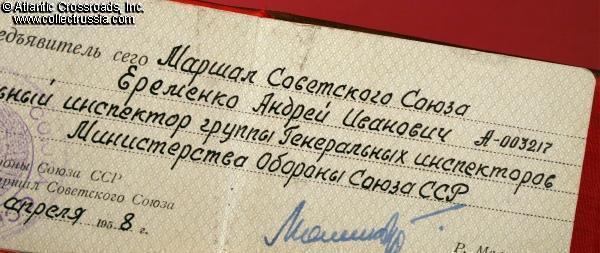 © Atlantic Crossroads, Inc.
www.collectrussia.com
едъявитель сего Маршал Советского Союза
Еременко Андрей Иванович А-003217
ьный инспектор группы Генеральных инспекторов
Министерства Обороны Союза ССР
роны Союза ССР
аршал Советского Союза
апреля 1958 г.
Р. Ма